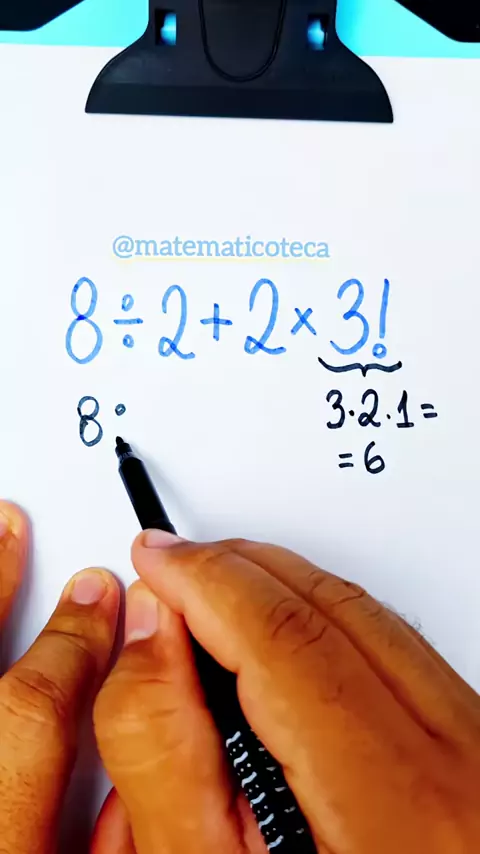 @matematicoteca
8÷2+2×3!
3·2·1=
=6
8